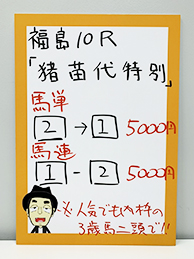 福島10R
「猪苗代特別」
馬単
2→1 5000円
馬連
1-2 5000円
人気でも内枠の
3歳馬二頭で!!